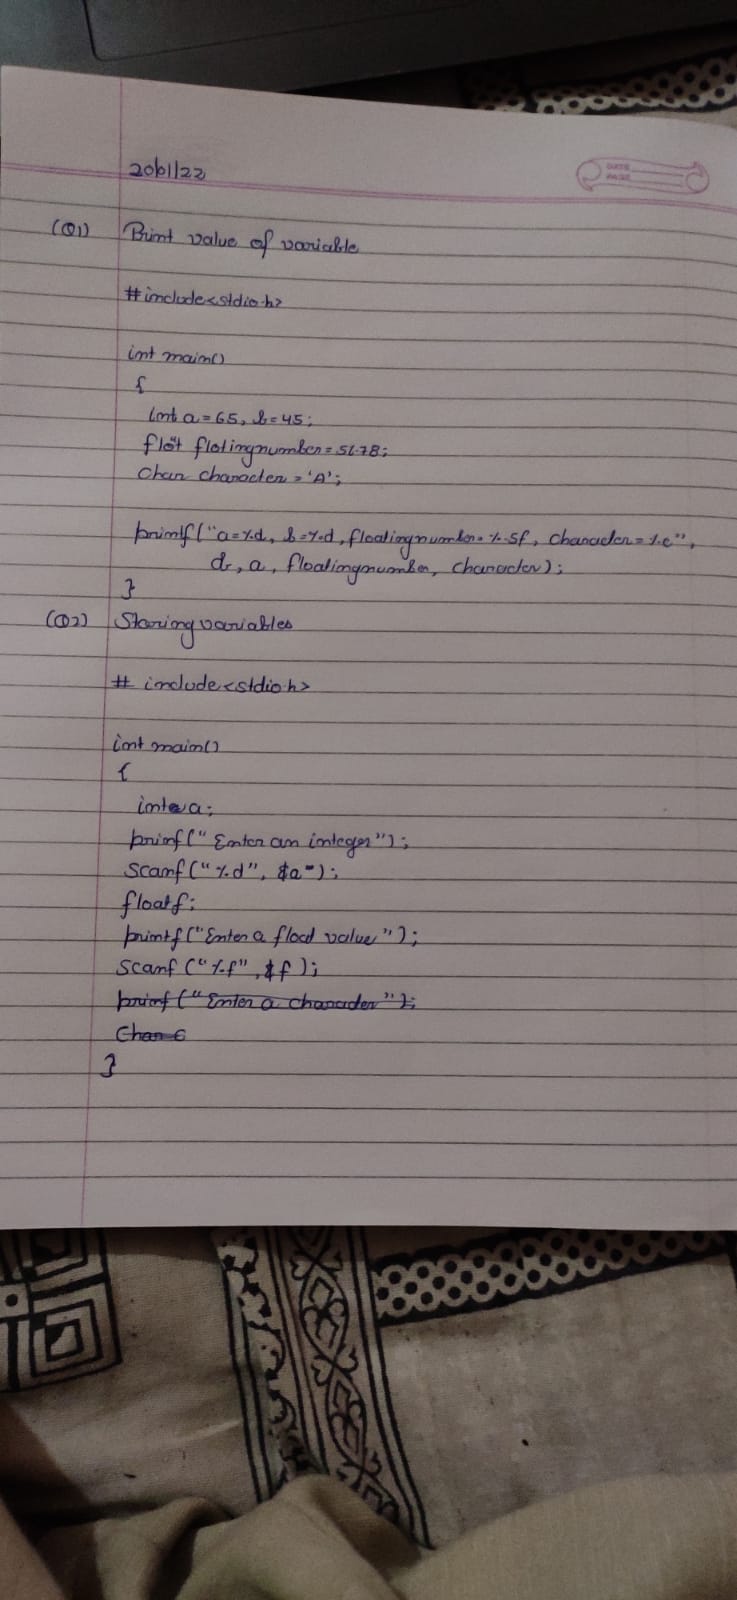 20/01/22
DATE
PAGE
(Q1) Print value of variable
#include<stdio.h>
int main()
{
int a=65, b=45;
flot flotingnumber=56.78;
Char character='A';
printf("a=%d, b=%d, floatingnumber=%.5f, character=%c",
a, floatingnumber, character);
}
(Q2) Storing variables
# include<stdio.h>
int main()
{
int a;
prinf("Enter an integer");
scanf("%d", &a");
float f;
printf("Enter a float value");
scanf("%f", &f);
prinf("Enter a character");
Char c
}